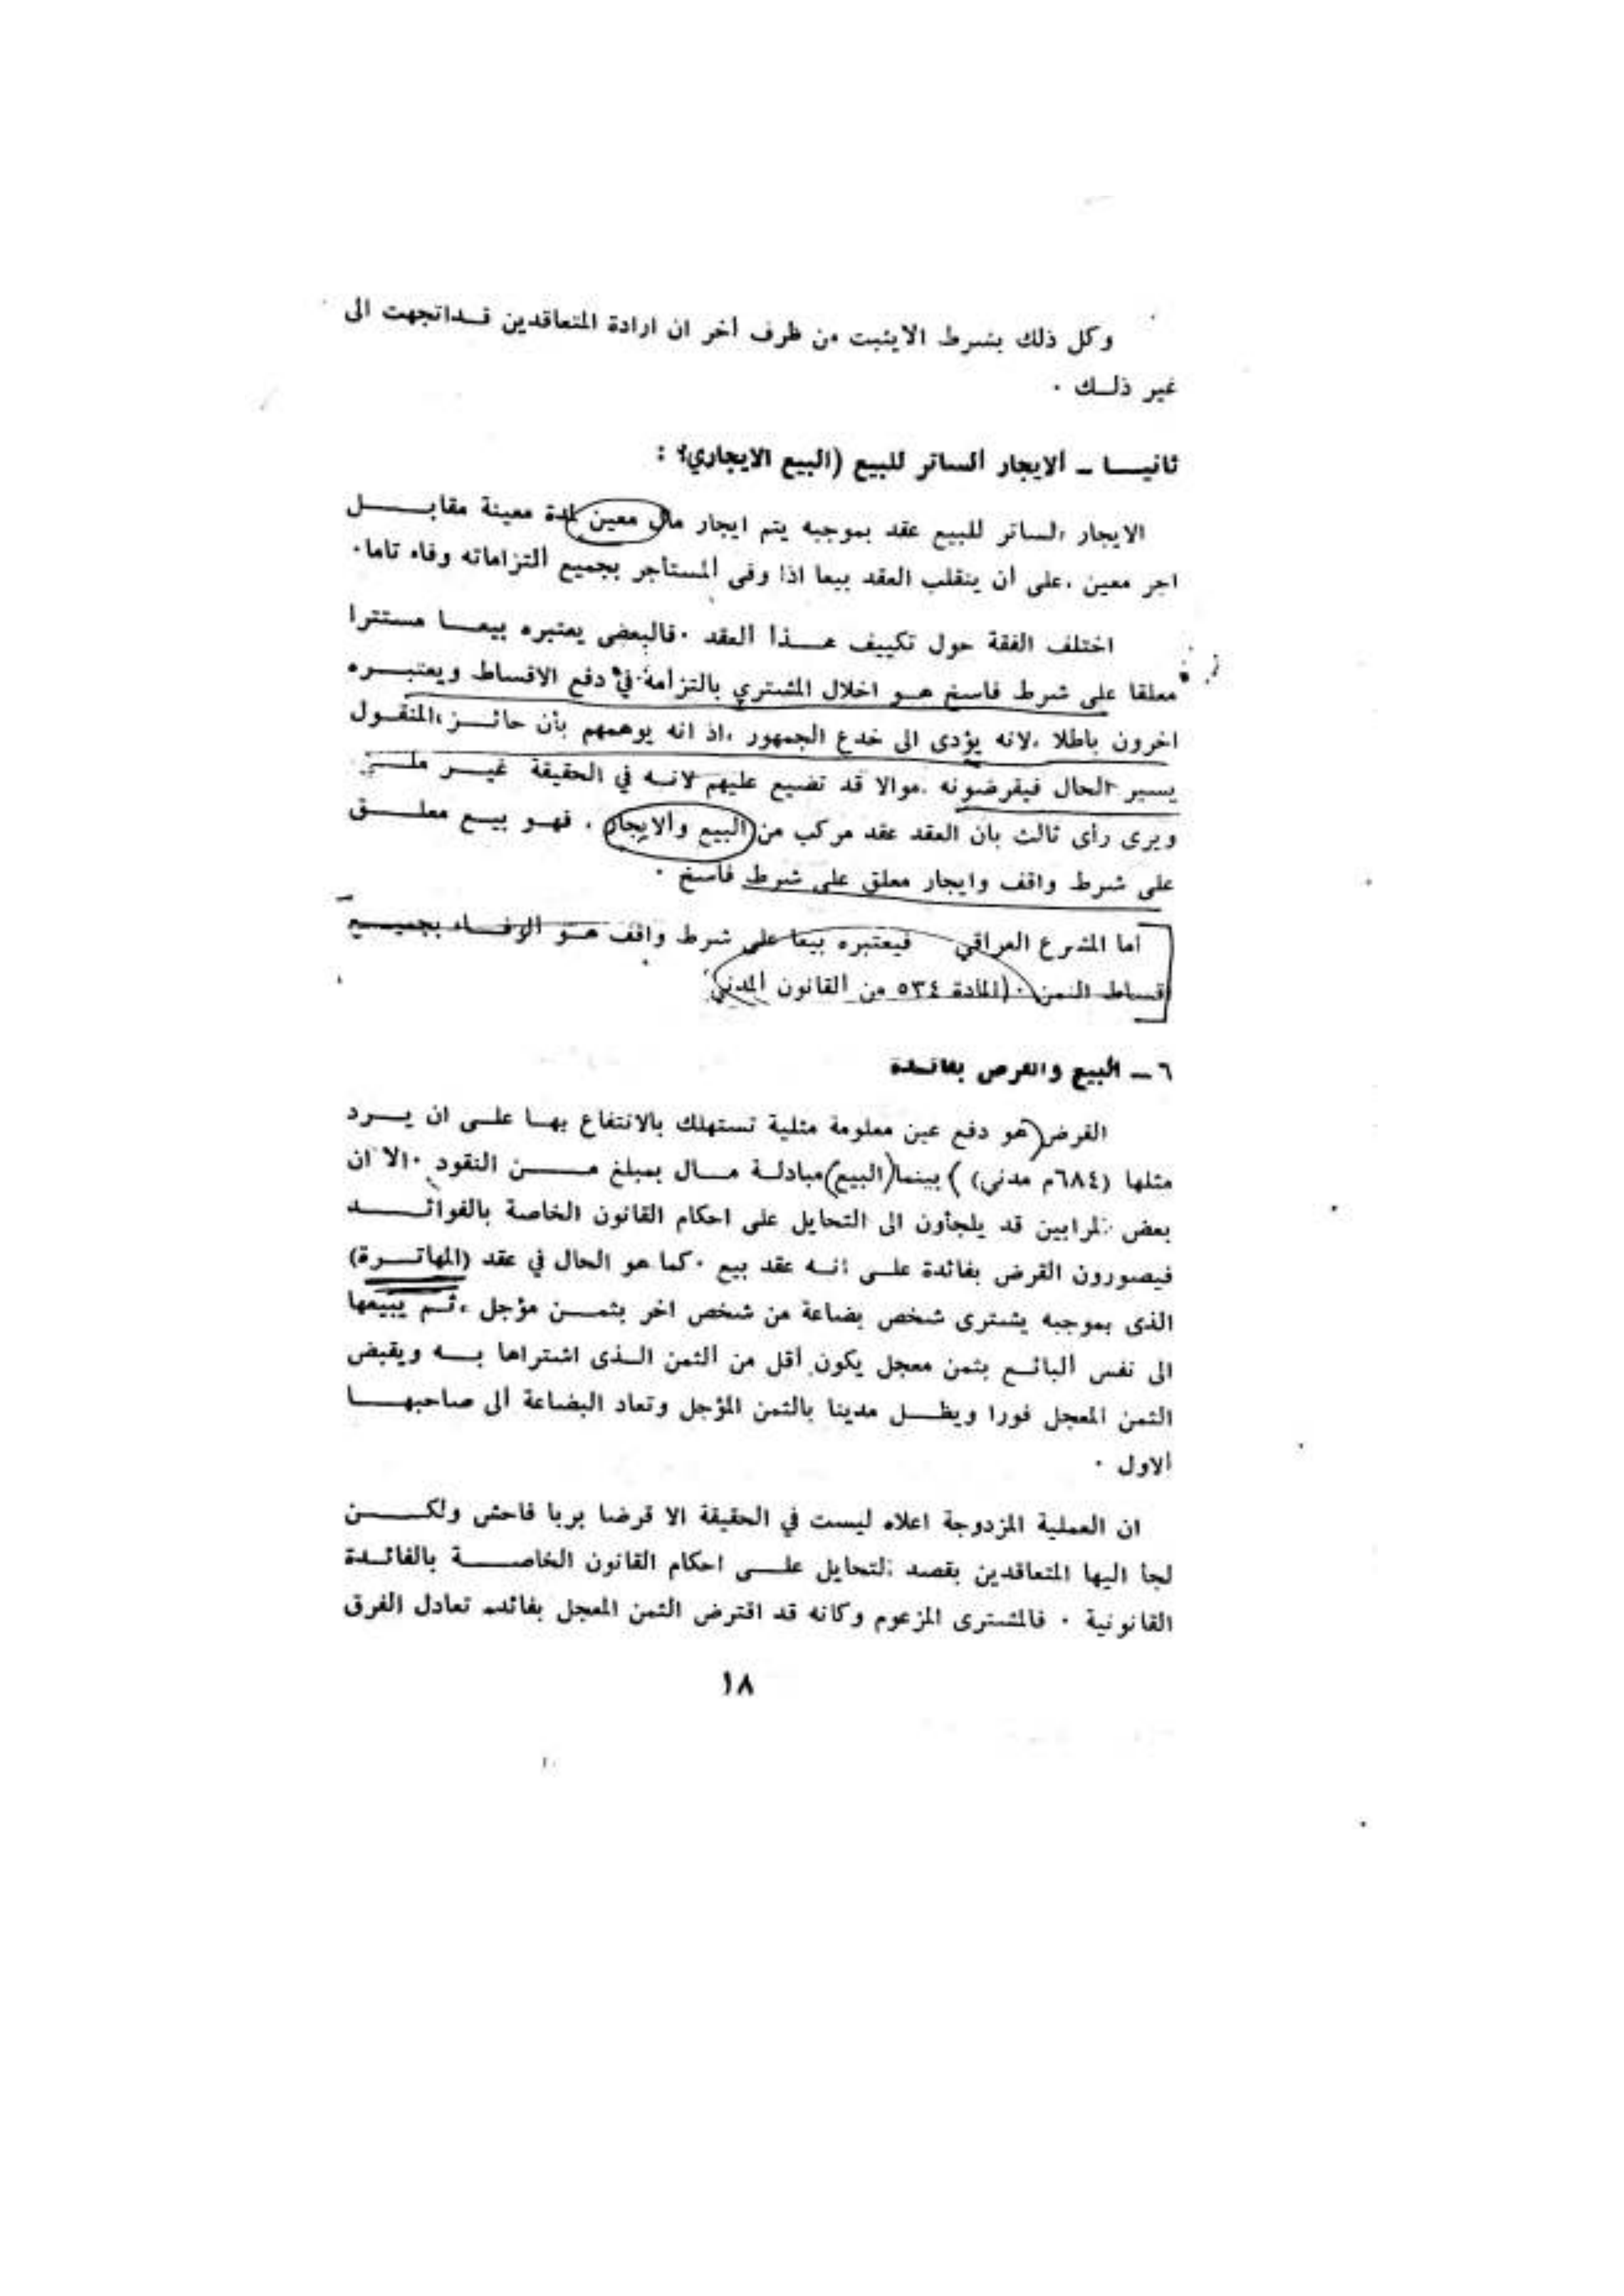 وكل ذلك بشرط الايثبت من ظرف أخر ان ارادة المتعاقدين قـداتجهت الى
غير ذلـك .
ثانيـــا ــ ألايجار ألساتر للبيع (البيع الايجاري) :
الايجار الساتر للبيع عقد بموجبه يتم ايجار مال معين لمدة معينة مقابــــل
اجر معين ،على أن ينقلب العقد بيعا اذا وفى ألمستأجر بجميع ألتزاماته وفاء تاما.
اختلف الفقة حول تكييف هـــذا العقد .فالبعض يعتبره بيعـــا مستترا
معلقا على شرط فاسخ هـو اخلال المشتري بالتزامة في دفع الاقساط ويعتبـــره
اخرون باطلا ،لانه يؤدى الى خدع الجمهور ،اذ انه يوهمهم بأن حائــز المنقــول
يسير الحال فيقرضونه اموالا قد تضيع عليهم لانـه في الحقيقة غيـــر ملــئ
ويرى رأى ثالث بان العقد عقد مركب من البيع وألايجار . فهـو بيـــع معلـــق
على شرط واقف وايجار معلق على شرط فاسخ .
أما المشرع العراقي فيعتبره بيعا على شرط واقف هــو الوفــاء بجميــــع
اقساط الثمن .(المادة ٥٣٤ من القانون المدني)
٦ ــ البيع والقرض بفائــدة
القرض (هو دفع عين معلومة مثلية تستهلك بالانتفاع بهـا علــى ان يـــرد
مثلها (٦٨٤م مدني) ) بينما (البيع) مبادلـة مــال بمبلغ مــــن النقود .الا ان
بعض المرابين قد يلجأون الى التحايل على احكام القانون الخاصة بالفوائــــد
فيصورون القرض بفائدة علــى انـه عقد بيع .كما هو الحال في عقد (المهاتـــرة)
الذى بموجبه يشترى شخص بضاعة من شخص اخر بثمـــن مؤجل ،ثــم يبيعها
الى نفس ألبائــع بثمن معجل يكون أقل من ألثمن الـذى اشتراها بـــه ويقبض
الثمن المعجل فورا ويظـــل مدينا بالثمن المؤجل وتعاد البضاعة ألى صاحبهـــا
ألاول .
ان العملية المزدوجة اعلاه ليست في الحقيقة الا قرضا بربا فاحش ولكــــن
لجأ اليها المتعاقدين بقصد التحايل علـــى احكام القانون الخاصـــــة بالفائــدة
القانونية . فالمشترى المزعوم وكانه قد اقترض الثمن المعجل بفائده تعادل الفرق
١٨